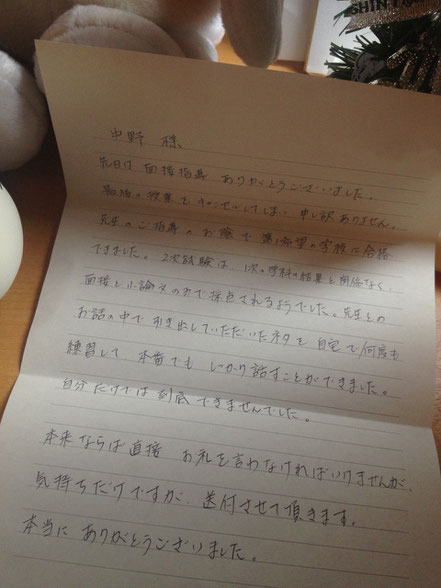 SHINY
中野 様
先日は 面接指導 ありがとうございました。
最後の授業をキャンセルしてしまい 申し訳ありません。
先生のご指導のお陰で第1希望の学校に合格
できました。2次試験は、1次の学科の結果と関係なく、
面接と小論文のみで採点されるようでした。先生との
お話の中で引き出していただいたネタを自宅で何度も
練習して 本番でも しっかり話すことができました。
自分だけでは到底できませんでした。
本来ならば直接 お礼を言わなければいけませんが、
気持ちだけですが、送付させて頂きます。
本当に ありがとうございました。